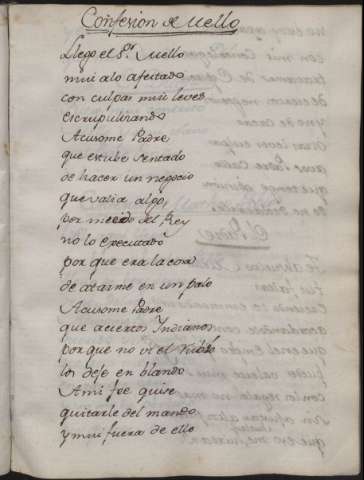 Confesion de Vello
Llego el S.or Vello
mui alo afeitado
con culpas mui leves
escrupulizando
Acusome Padre
que estube tentado
de hacer un negocio
que valia algo,
por miedo del Rey
no lo executado
por que era la cosa
de atarme en un palo
Acusome Padre
que aciertos Indianos
por que no vi el
los dexe en blando
Ami fee quise
quitarle del mando
y mui fuera de ello